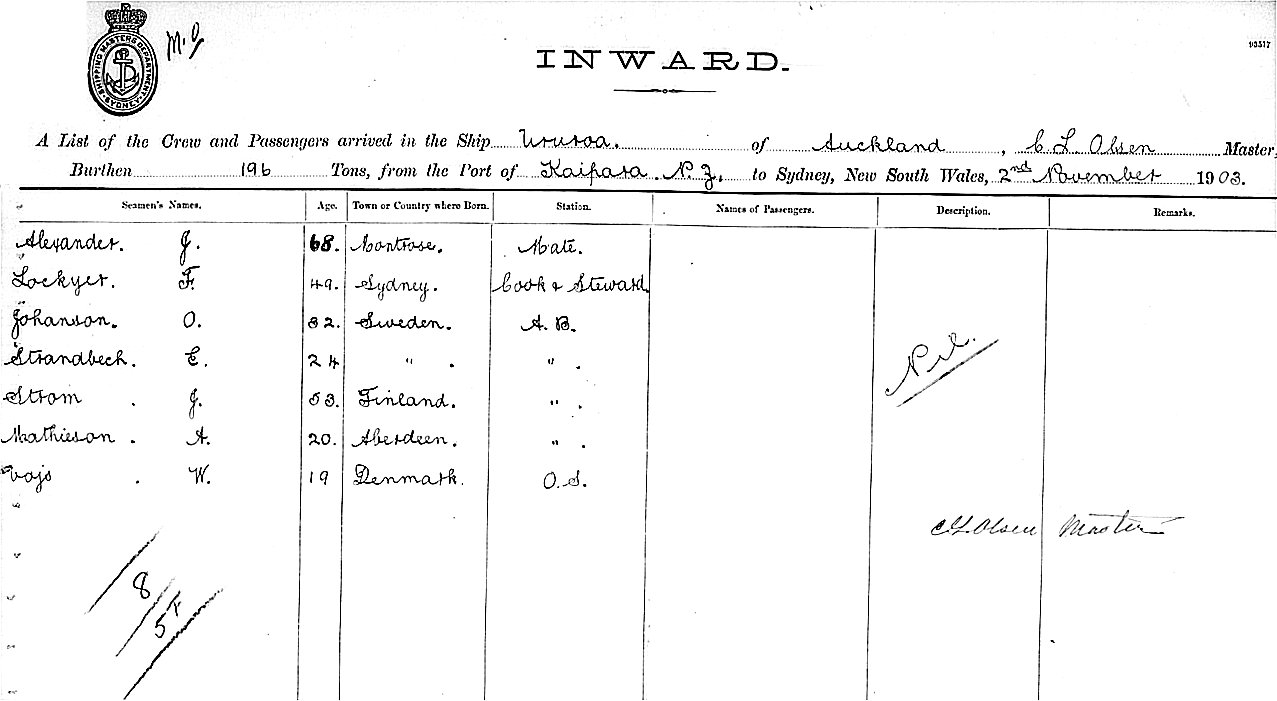 SHIPPING MASTERS DEPARTMENT SYDNEY
93517
INWARD.
A List of the Crew and Passengers arrived in the Ship Ururoa. of Auckland, C L Olsen Master,
Burthen 196 Tons, from the Port of Kaipara N.Z. to Sydney, New South Wales, 2nd November 1903.
Seamen's Names. Age. Town or Country where Born. Station. Names of Passengers. Description. Remarks.
Alexander. J. 68. Montrose. Mate.
Lockyer. F. 49. Sydney. Cook & Steward.
Johanson. O. 32. Sweden. A.B.
Strandbeck. E. 24 " . " .
Nil.
Strom . J. 53. Finland. " .
Mathieson . A. 20. Aberdeen. " .
. W. 19 Denmark. O.S.
C L Olsen Master
8